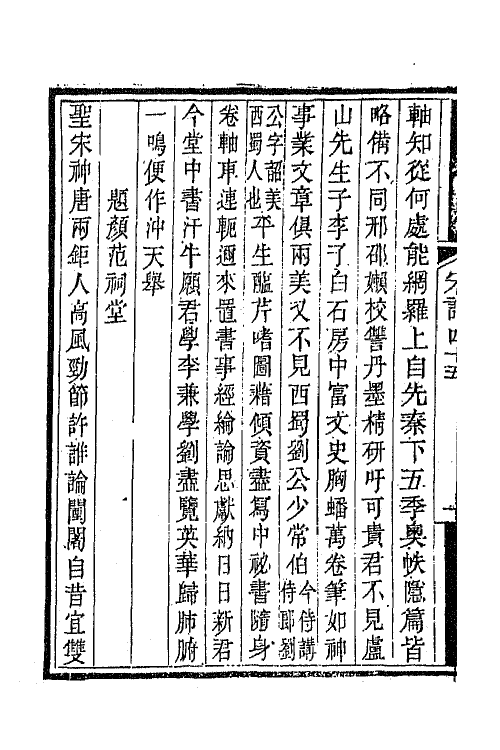 軸知從何處能網羅上自先秦下五季奥帙隱篇皆
略備不同邢邵嬾校讐丹墨精研吁可貴君不見盧
山先生子李子白石房中富文史胸蟠萬卷筆如神
事業文章俱兩美又不見西蜀劉公少常伯今侍講侍郎劉
公字韶美西蜀人也平生醞芹嗜圖籍傾資盡寫中祕書隨身
卷軸車連軛邇來置書事經綸論思獻納日日新君
今堂中書汗牛願君學李兼學劉盡覽英華歸肺腑
一鳴便作沖天舉
題顏范祠堂
聖宋神唐兩鉅人高風勁節許誰論闉闍自昔宜雙